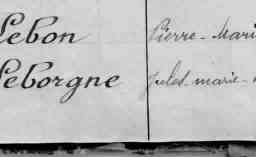 Lebon Pierre - Mari
Leborgne Jules - marie -